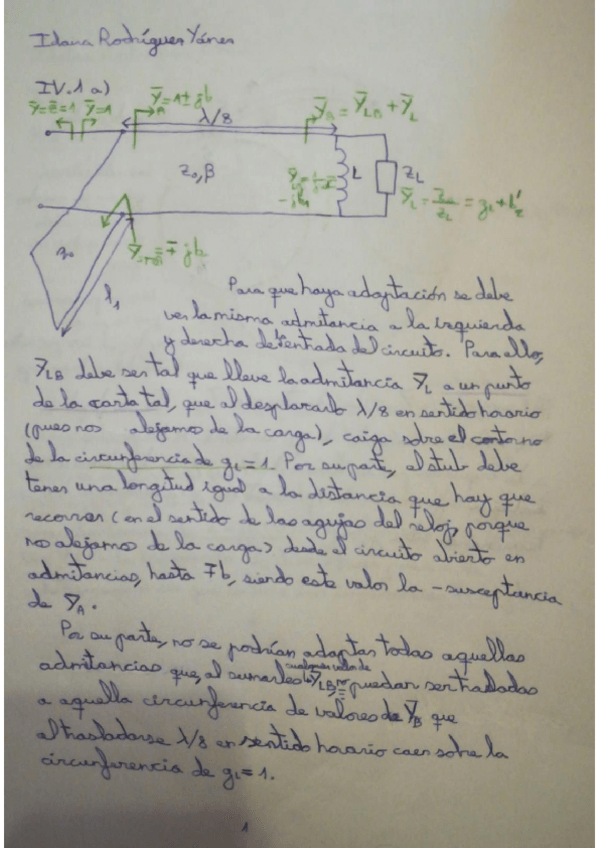 Idana Rodríguez Yánes
IV.1 a)
ȳ=z̄=1 ȳ=1 ȳ=1±jb
λ/8
ȳB = ȳLB + ȳL
Z0,β
L
ZL
-jb1
ȳL = Z0/ZL = gL +
z0
l1
∓jb
Para que haya adaptación se debe
ver la misma admitancia a la izquierda
y derecha de entrada del circuito. Para ello,
ȳLB debe ser tal que lleve la admitancia ȳL a un punto
de la carta tal, que al desplazarlo λ/8 en sentido horario
(pues nos alejamos de la carga), caiga sobre el contorno
de la circunferencia de gL=1. Por su parte, el stub debe
tener una longitud igual a la distancia que hay que
recorrer (en el sentido de las agujas del reloj, porque
nos alejamos de la carga) desde el circuito abierto en
admitancias, hasta ∓b, siendo este valor la -susceptancia
de ȳA.
Por su parte, no se podrían adaptar todas aquellas
admitancias que, al sumarles cualquier valor de ȳLB, no puedan ser trasladadas
a aquella circunferencia de valores de ȳB que
al trasladarse λ/8 en sentido horario caen sobre la
circunferencia de gL=1.
1